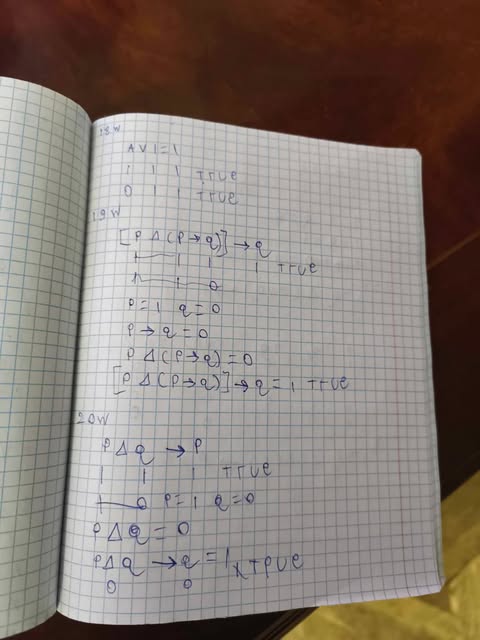 18W
A V 1 = 1
1 1 1 True
0 1 1 True
19W
[P Δ (P → q)] → q
1 1 1 1 True
1 1 0
P = 1 q = 0
P → q = 0
P Δ (P → q) = 0
[P Δ (P → q)] → q = 1 True
20W
P Δ q → P
1 1 1 True
1 0 P = 1 q = 0
P Δ q = 0
P Δ q → q = 1 x True
0 0